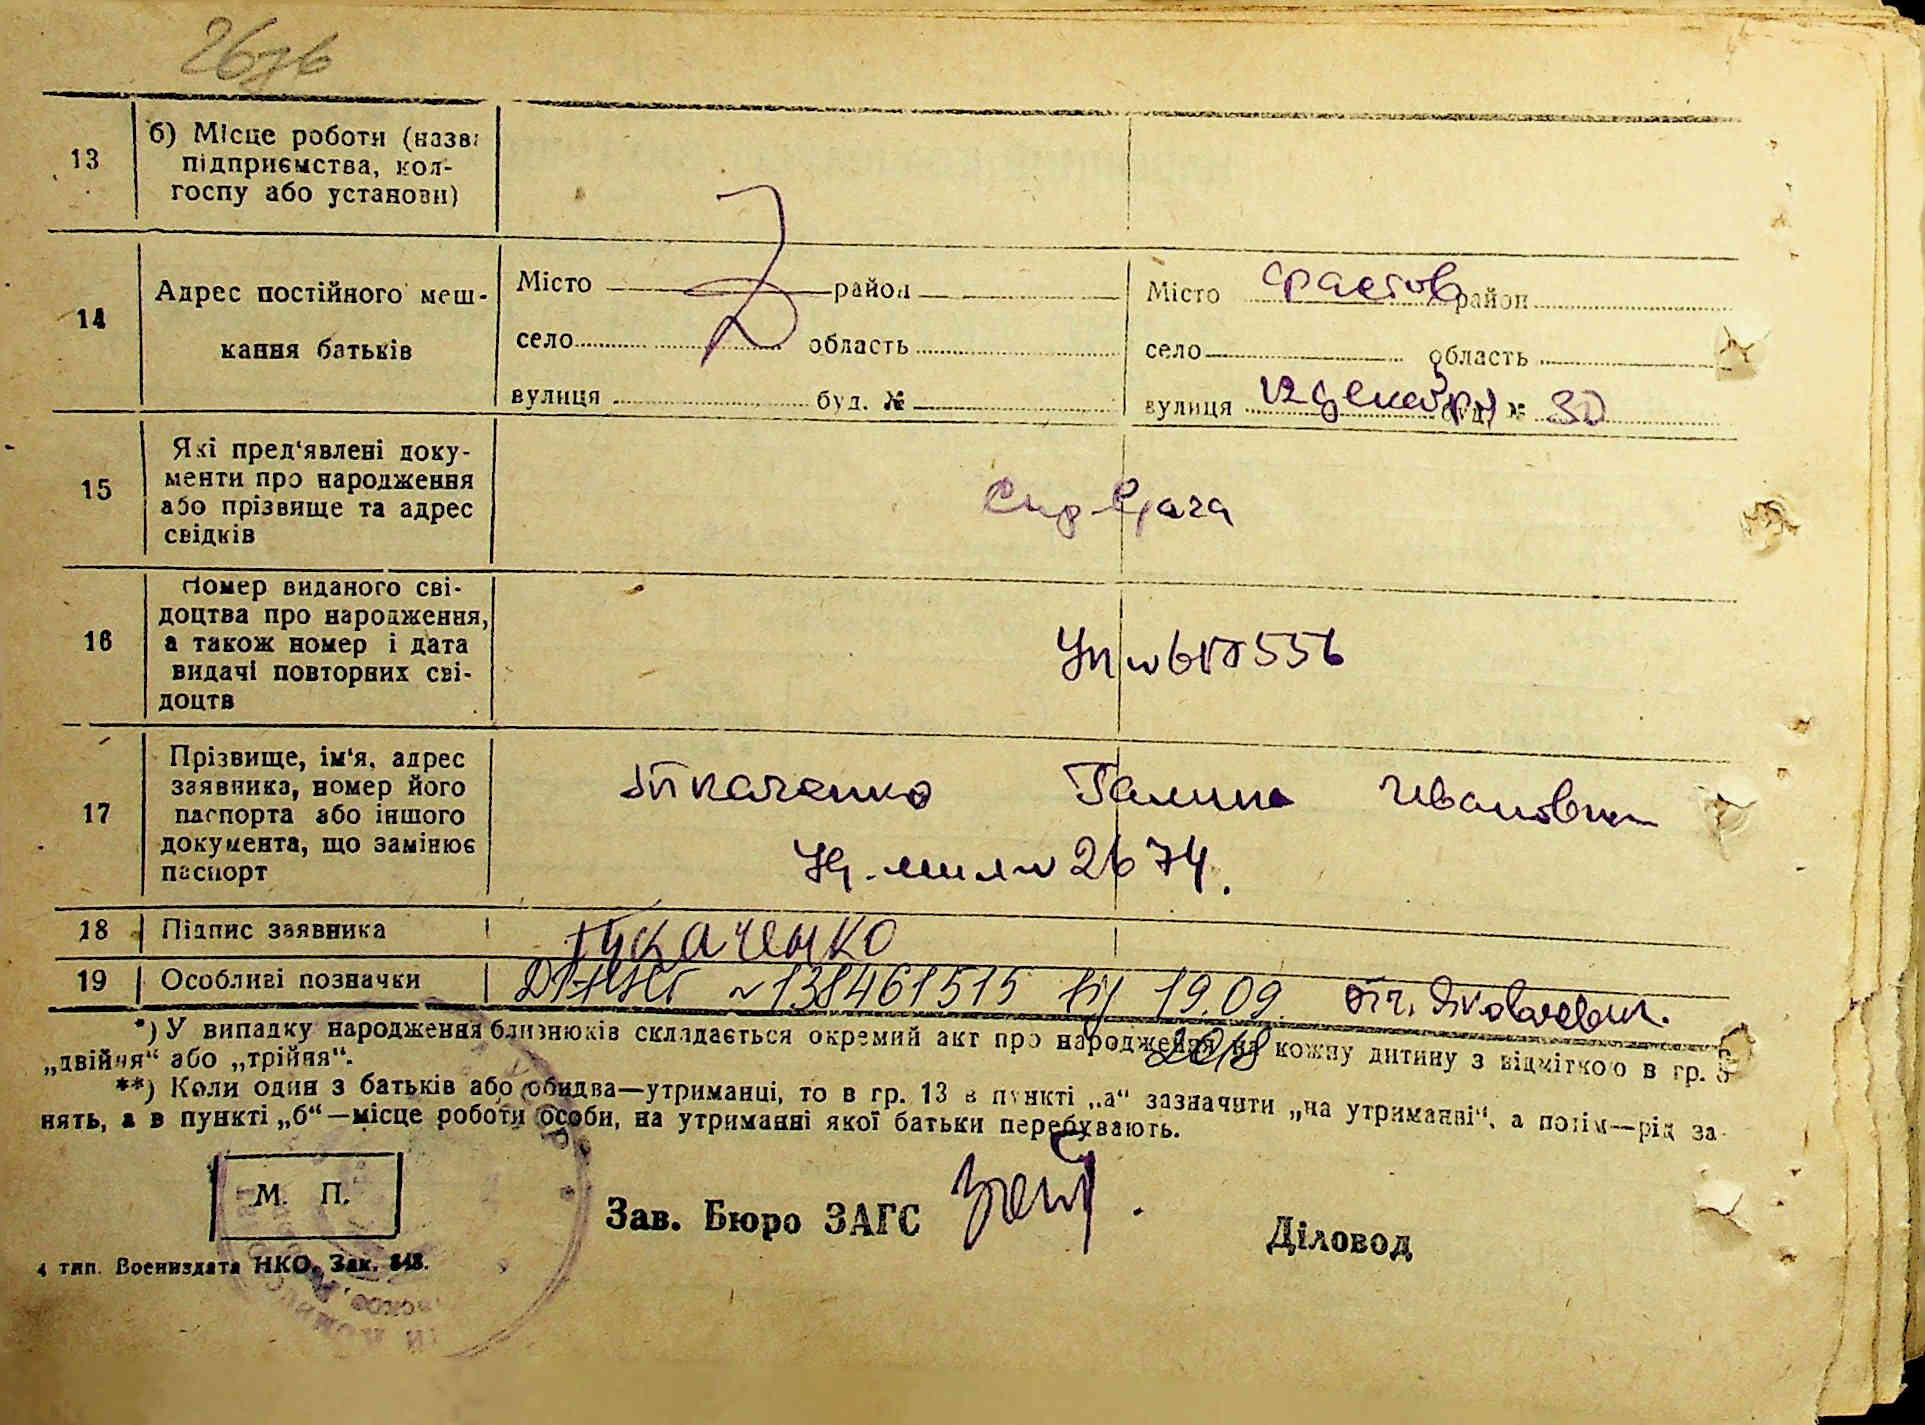 267б
13
б) Місце роботи (назва
підприємства, кол-
госпу або установи)
14
Адрес постійного меш-
кання батьків
Місто район
село область
вулиця буд. №
Місто Фастов район
село область
вулиця 12 декабря буд. № 30
15
Які пред'явлені доку-
менти про народження
або прізвище та адрес
свідків
Спр врача
16
Номер виданого сві-
доцтва про народження,
а також номер і дата
видачі повторних сві-
доцтв
17
Прізвище, ім'я, адрес
заявника, номер його
паспорта або іншого
документа, що замінює
паспорт
Ткаченко Галина Ивановна
2674.
18 Підпис заявника Ткаченко
19 Особливі позначки №138461515 від 19.09.
2018
*) У випадку народження близнюків складається окремий акт про народження на кожну дитину з відміткою в гр. 5
„двійня“ або „трійня“.
**) Коли один з батьків або обидва—утриманці, то в гр. 13 в пункті „а“ зазначити „на утриманні“, а потім—рід за-
нять, а в пункті „б“—місце роботи особи, на утриманні якої батьки перебувають.
М. П.
Зав. Бюро ЗАГС
Діловод
4 тип. Воениздата НКО. Зак. 848.